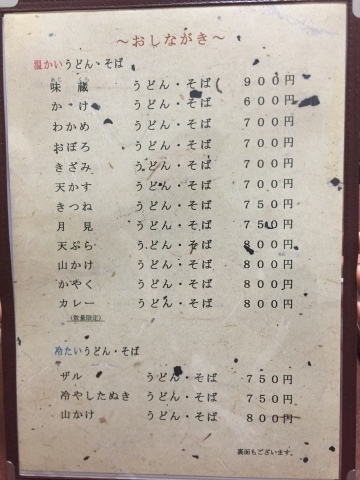 ～おしながき～
温かいうどん・そば
味蔵 うどん・そば 900円
かけ うどん・そば 600円
わかめ うどん・そば 700円
おぼろ うどん・そば 700円
きざみ うどん・そば 700円
天かす うどん・そば 700円
きつね うどん・そば 750円
月見 うどん・そば 750円
天ぷら うどん・そば 800円
山かけ うどん・そば 800円
かやく うどん・そば 800円
カレー うどん・そば 800円
(数量限定)
冷たいうどん・そば
ザル うどん・そば 750円
冷やしたぬき うどん・そば 750円
山かけ うどん・そば 800円
裏面もございます。